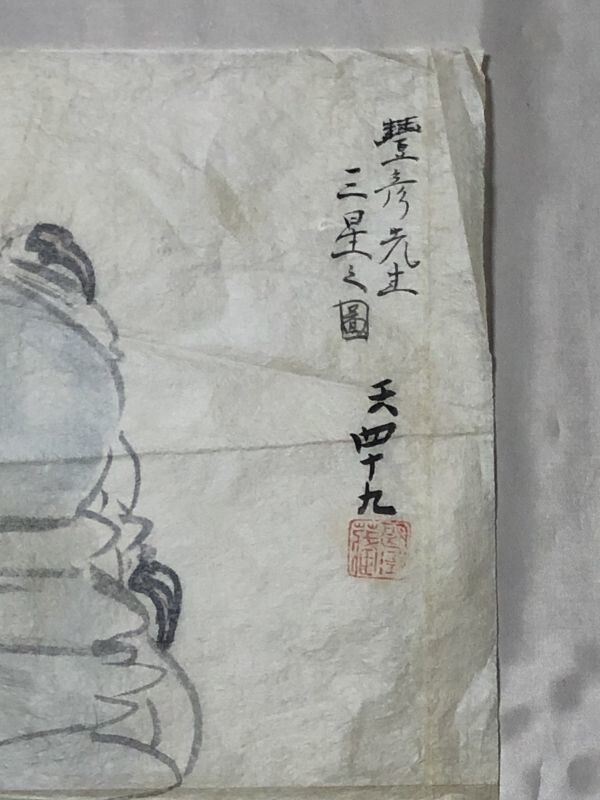 豐彦先生
三星之圖
天四十九